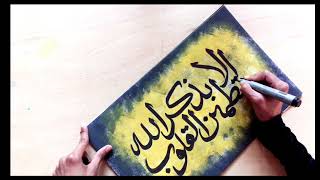 الا بذكر الله
تطمئن القلوب